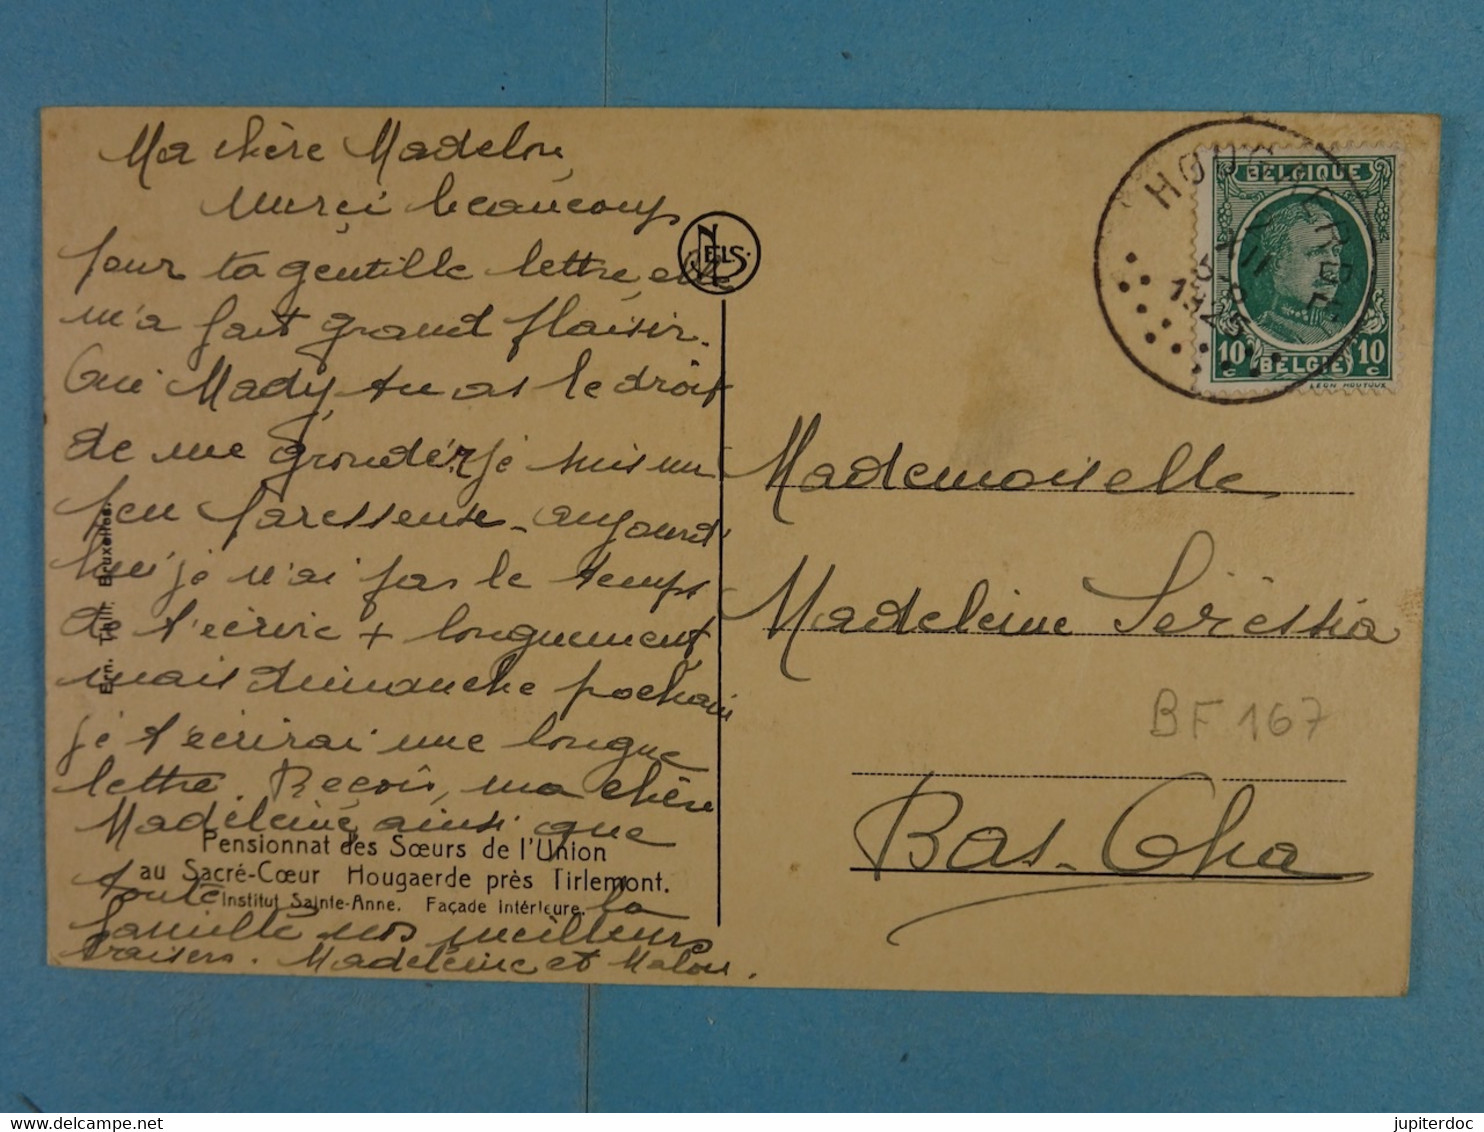 Ma chère Madelon,
Merçi beaucoup
pour ta gentille lettre, elle
m'a fait grand plaisir.
Oui Mady, tu as le droit
de me gronder, je suis un
peu paresseuse - aujourd'
hui je n'ai pas le temps
de t'écrire + longuement,
mais dimanche pochain
je t'écrirai une longue
lettre. Reçois, ma chère
Madeleine, ainsi que
toute la
famille nos meilleurs
baisers. Madeleine et Malou.
Pensionnat des Sœurs de l'Union
au Sacré-Cœur Hougaerde près Tirlemont.
Institut Sainte-Anne. Façade intérieure.
Ern. Thill. Bruxelles.
NELS.
BELGIQUE
10c BELGIË 10c
LEON HOUYOUX
XII
1925
Mademoiselle
Madeleine
Bas-Oha
BF 167
jupiterdoc